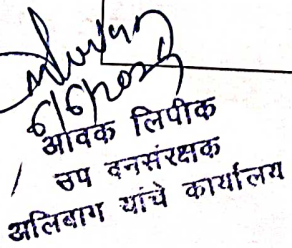 आवक लिपीक
उप वनसंरक्षक
अलिबाग यांचे कार्यालय